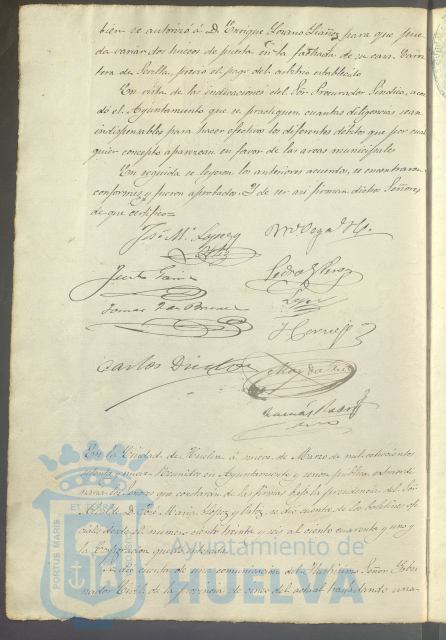 bien se autorizó á D. Enrique Lozano Ibáñez para que pue
da variar dos huecos de puerta en la fachada de su casa Carre
tera de Sevilla, previo el pago del arbitrio establecido
En vista de las indicaciones del Sor. Procurador Síndico, acor
dó el Ayuntamiento que se practiquen cuantas diligencias sean
indispensables para hacer efectivos los diferentes débitos que por cual
quier concepto aparezcan en favor de las arcas municipales
En seguida se leyeron los anteriores acuerdos, se encontraron
conformes y fueron aprobados. Y de ser así firman dichos Señores
de que certifico=
José Mª López
Justo García
Pedro G Perez
Tomas
Carlos
En la Ciudad de Huelva á nueve de Marzo de mil ochocientos
y nueve Reunidos en Ayuntamiento y sesion publica extraordi
naria los Señores que constaran de las firmas bajo la presidencia del Sor
Alcalde D. José Maria López y se dió cuenta de los boletines ofi
ciales desde el numero ciento treinta y seis al ciento cuarenta y uno y
la Corporacion quedó enterada
Se dió cuenta de una comunicacion del Señor Gober
nador Civil de la provincia de del actual trasladando una
PORTUS MARIS
ET TERRÆ
Ayuntamiento de
HUELVA